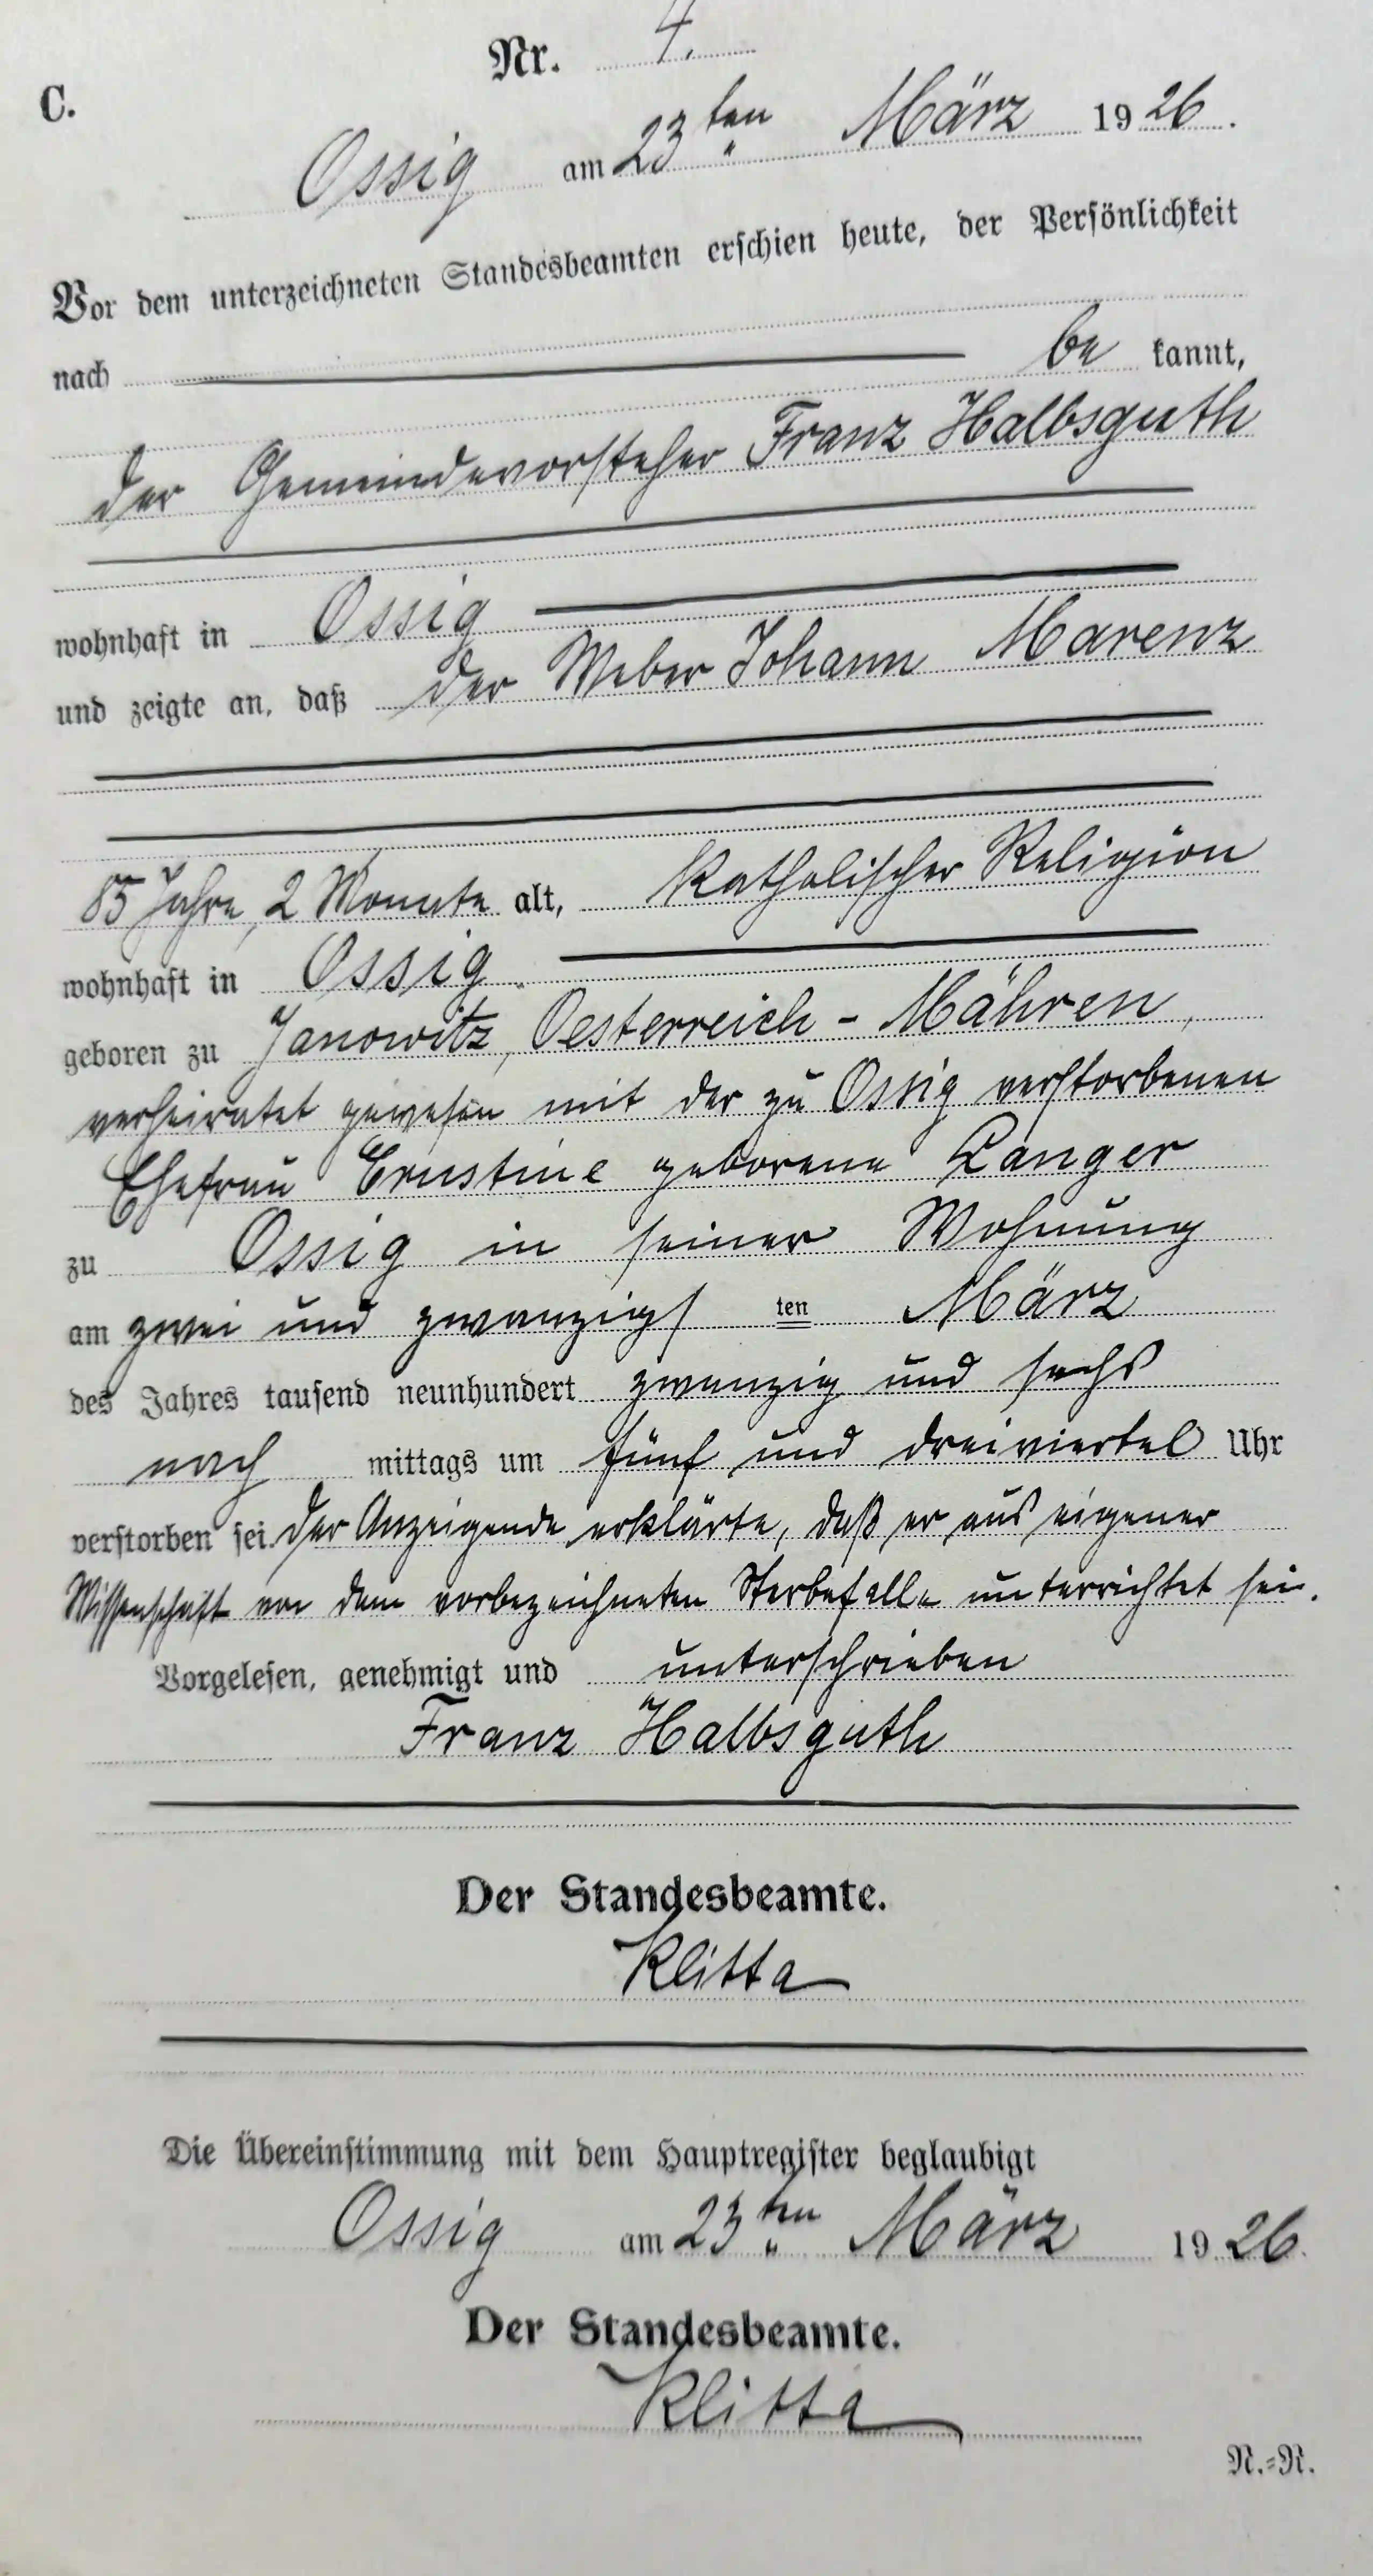 Nr. 4.
C.
Ossig am 23ten März 1926.
Vor dem unterzeichneten Standesbeamten erschien heute, der Persönlichkeit
nach be kannt,
der Gemeindevorsteher Franz Halbsguth
wohnhaft in Ossig
und zeigte an, daß der Weber Johann Marenz
85 Jahre, 2 Monate alt, katholischer Religion
wohnhaft in Ossig
geboren zu Janowitz, Oesterreich - Mähren,
verheiratet gewesen mit der zu Ossig verstorbenen
Ehefrau Ernstine geborene Langer
zu Ossig in seiner Wohnung
am zwei und zwanzigs ten März
des Jahres tausend neunhundert zwanzig und sechs
nach mittags um fünf und dreiviertel Uhr
verstorben sei. Der Anzeigende erklärte, daß er aus eigener
Wissenschaft von dem vorbezeichneten Sterbefalle unterrichtet sei.
Vorgelesen, genehmigt und unterschrieben
Franz Halbsguth
Der Standesbeamte.
Klitta
Die Übereinstimmung mit dem Hauptregister beglaubigt
Ossig am 23ten März 1926.
Der Standesbeamte.
Klitta
N.=N.